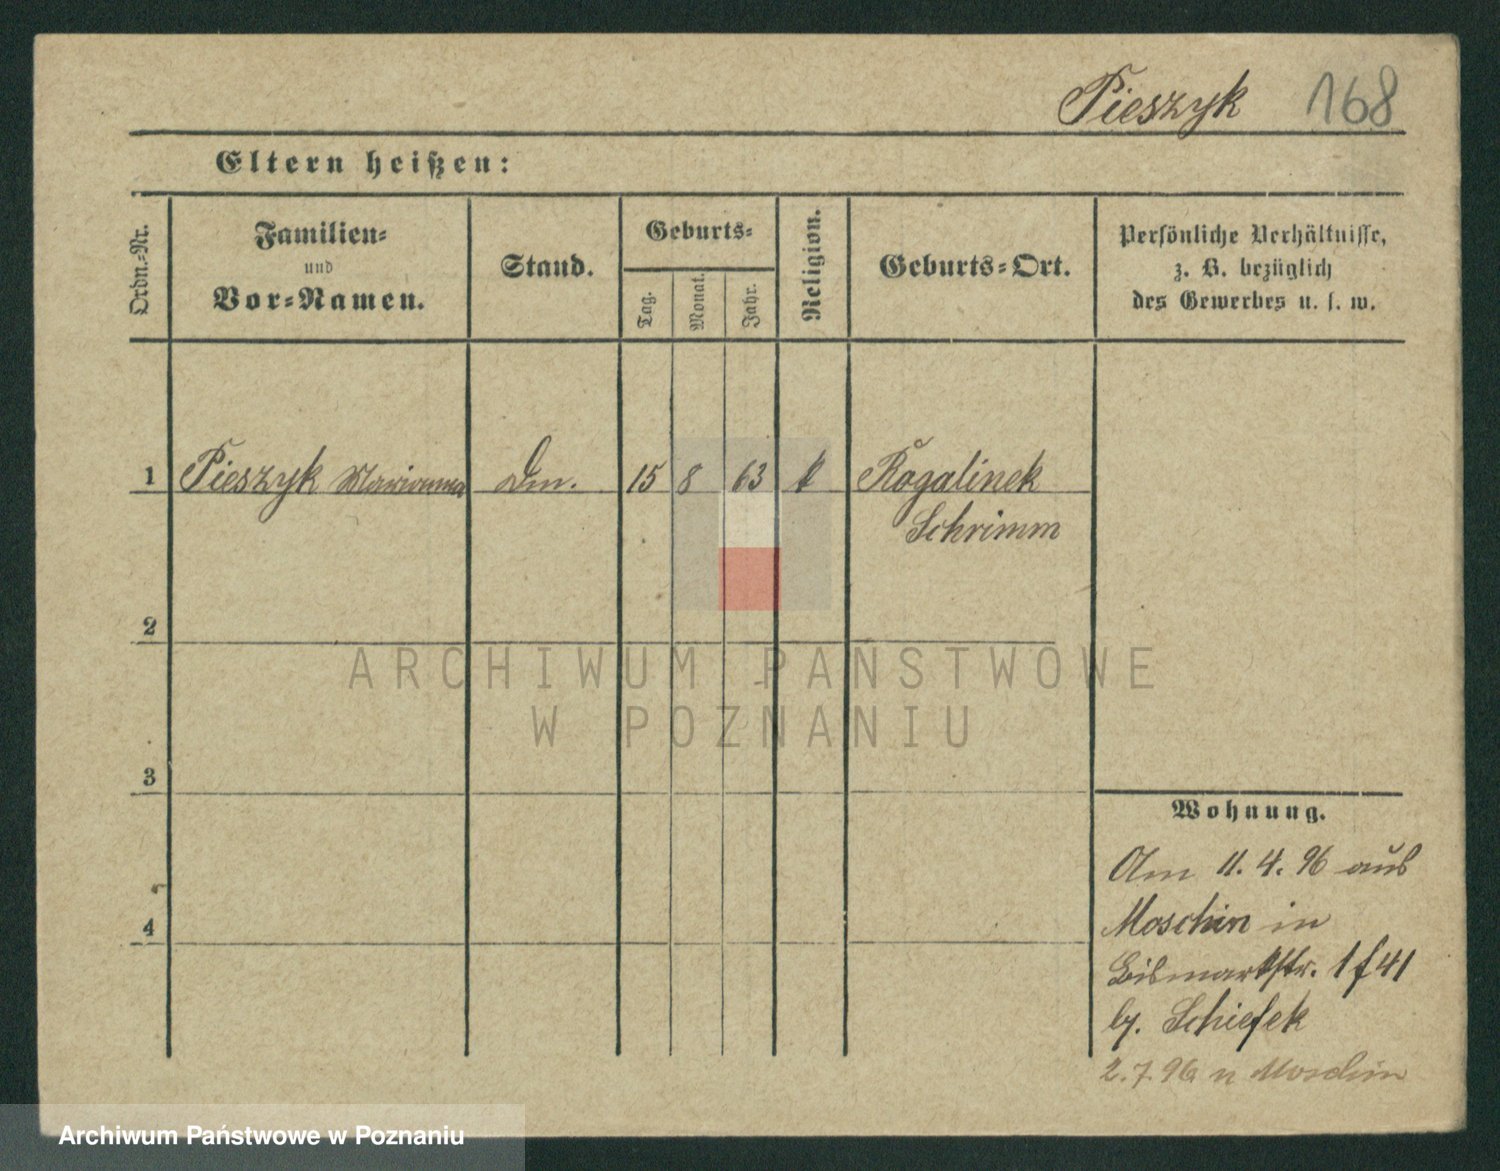 Pieszyk 168
Eltern heißen:
Ordn.-Nr.
Familien-
und
Vor-Namen.
Stand.
Geburts-
Tag.
Monat.
Jahr.
Religion.
Geburts-Ort.
Persönliche Verhältnisse,
z. B. bezüglich
des Gewerbes u. s. w.
1 Pieszyk Marianna Dm. 15 8 63 k Rogalinek
Schrimm
2
3
4
ARCHIWUM PAŃSTWOWE
W POZNANIU
Wohnung.
Am 11.4.96 aus
Moschin in
Bismarkstr. 1 f 41
by. Schiefek
2.7.96 n Moschin
Archiwum Państwowe w Poznaniu